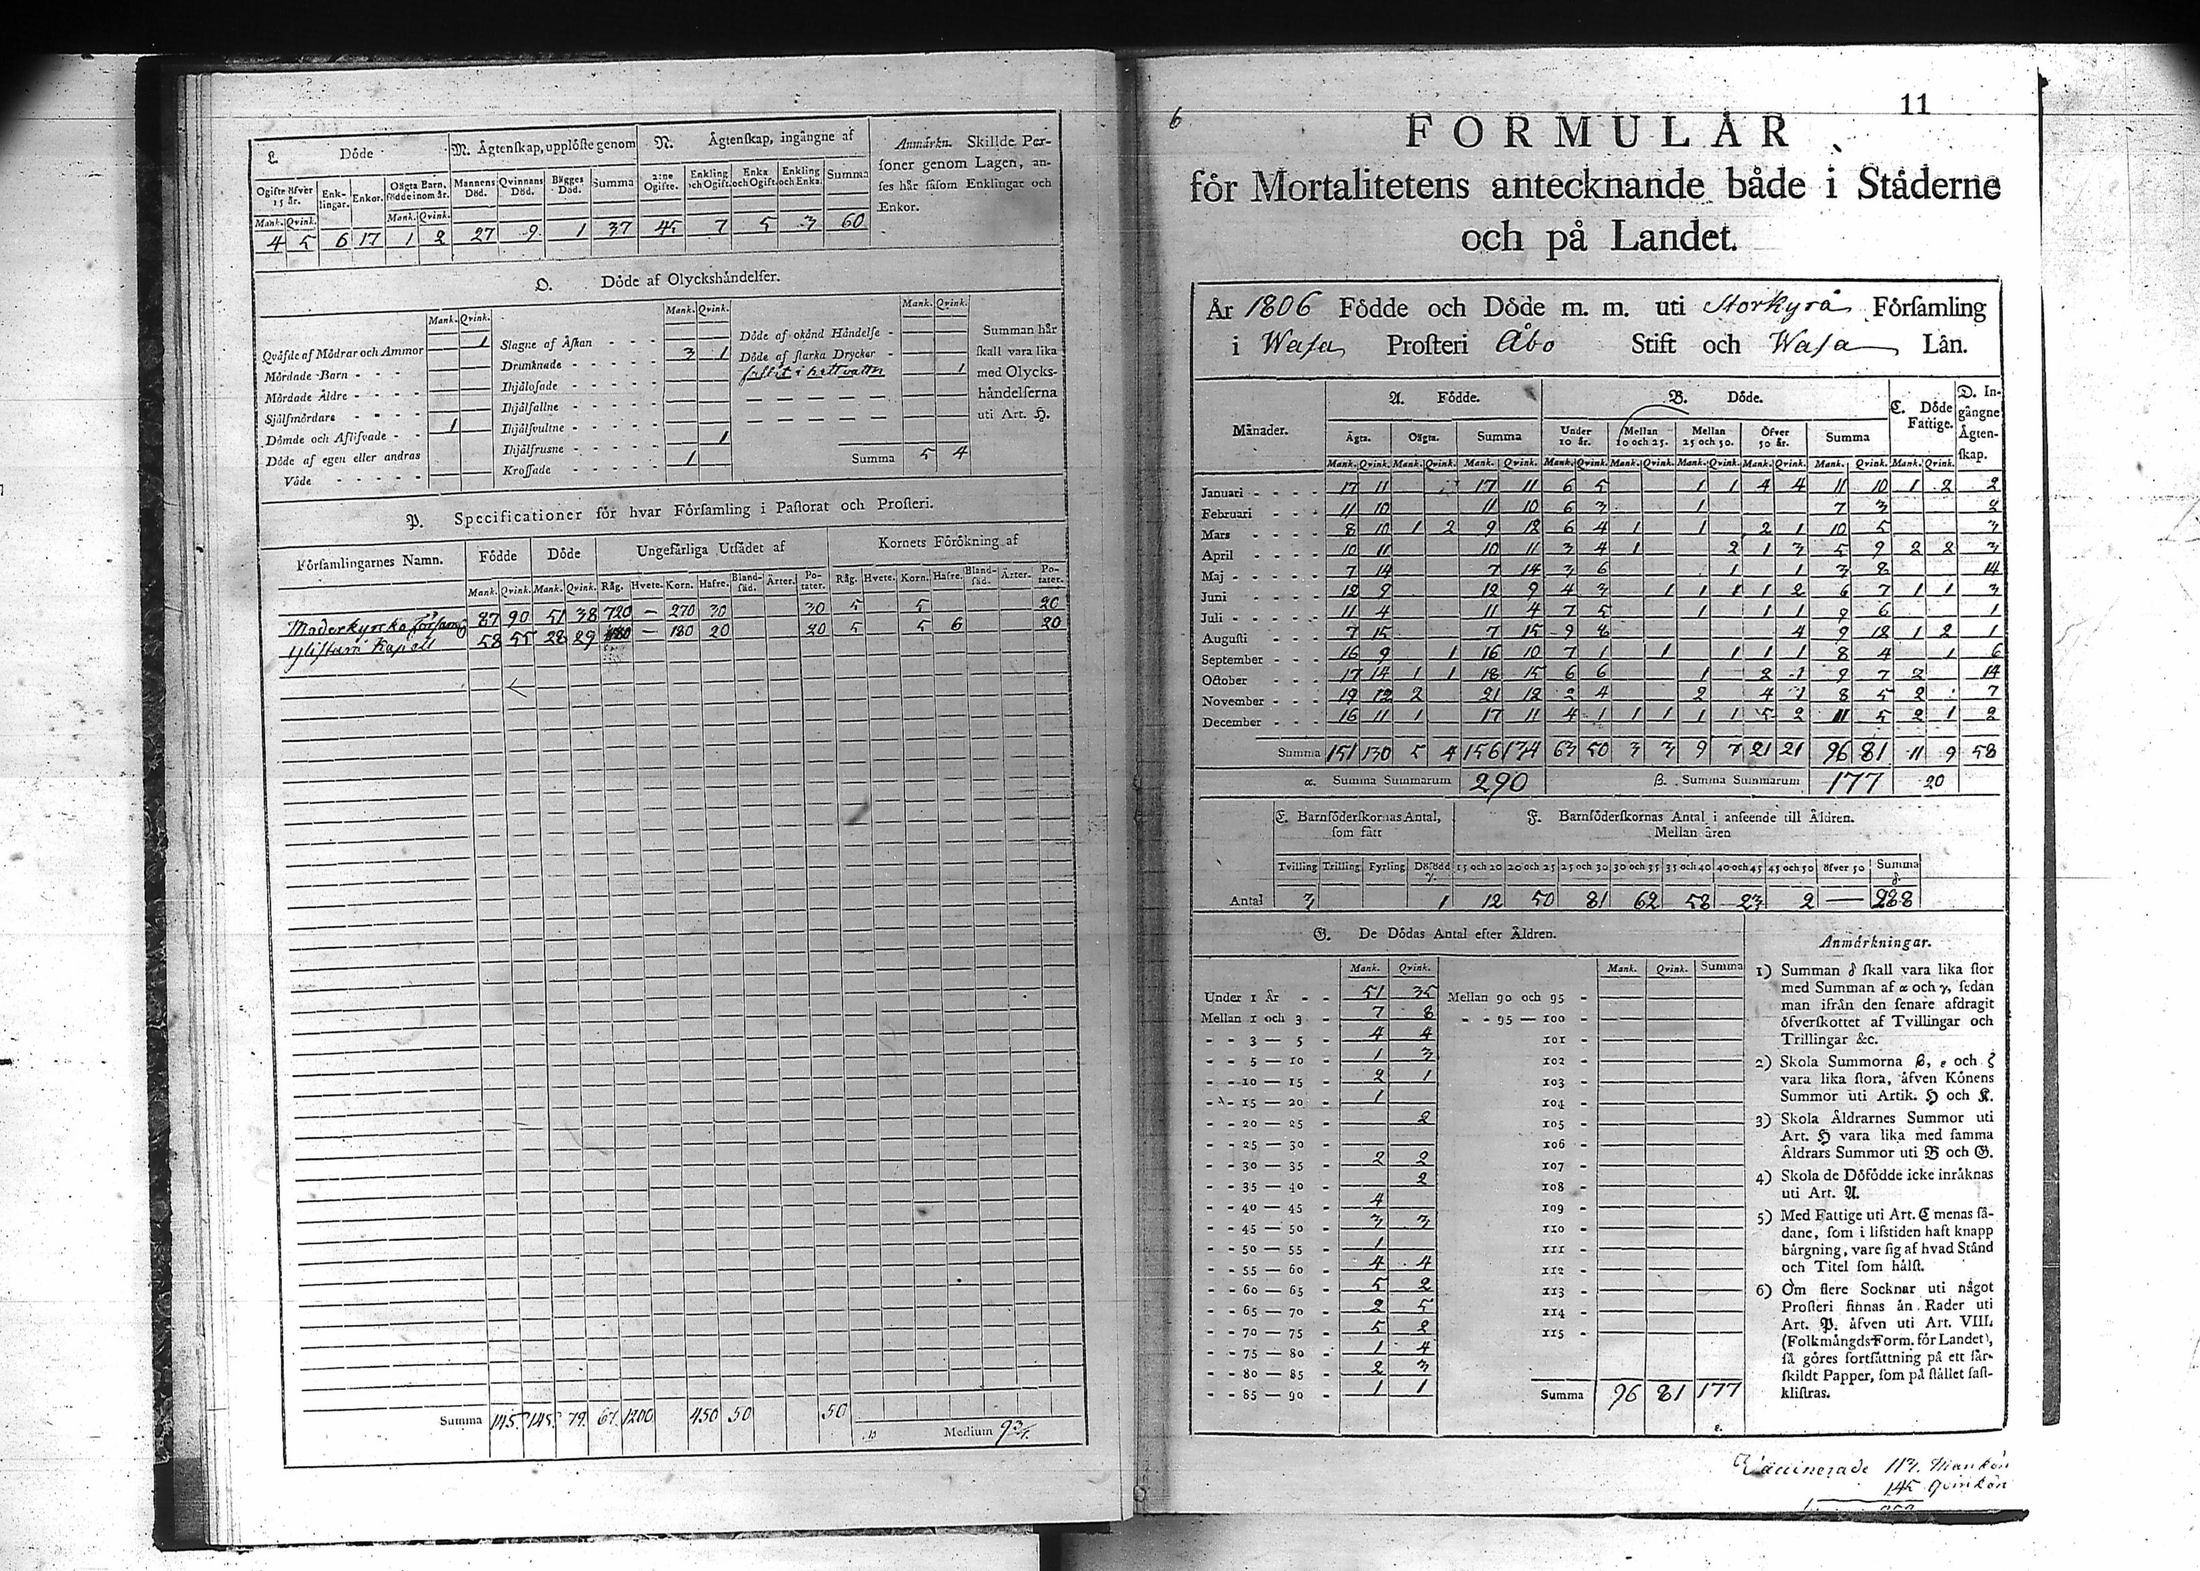 L. Döde
M. Ägtenskap, upplöste genom
N. Ägtenskap, ingångne af
Anmärkn. Skillde Personer genom Lagen, anses här såsom Enklingar och Enkor.
Ogifte öfver 15 år. Enklingar. Enkor. Oägta Barn, födde inom år. Mannens Död. Qvinnans Död. Bägges Död. Summa 2:ne Ogifte. Enkling och Ogift. Enka och Ogift. Enkling och Enka. Summa
Mank. Qvink. Mank. Qvink.
4 5 6 17 1 2 27 9 1 37 45 7 5 3 60
O. Döde af Olyckshändelser.
Mank. Qvink. Mank. Qvink. Mank. Qvink.
Qväfde af Mödrar och Ammor 1
Mördade Barn
Mördade Äldre
Självmördare
Dömde och Aflifvade 1
Döde af egen eller andras Våde
Slagne af Åskan
Drunknade 3 1
Ihjälosade
Ihjälfallne
Ihjälsvultne
Ihjälfrusne 1
Krossade 1
Döde af okänd Händelse
Döde af starka Drycker
fallit i hett vatten 1
Summa 5 4
Summan här skall vara lika med Olyckshändelserna uti Art. H.
P. Specificationer för hvar Församling i Pastorat och Prosteri.
Församlingarnes Namn. Födde Döde Ungefärliga Utsädet af Kornets Förökning af
Mank. Qvink. Mank. Qvink. Råg. Hvete. Korn. Hafre. Blandsäd. Ärter. Potater. Råg. Hvete. Korn. Hafre. Blandsäd. Ärter. Potater.
Moderkyrko församl. 87 90 51 38 720 — 270 30 30 5 5 20
Kapell 58 55 28 29 480 — 180 20 20 5 5 6 20
Summa 145 145 79 67 1200 450 50 50
Medium
6
11
FORMULÄR
för Mortalitetens antecknande både i Städerne
och på Landet.
År 1806 Födde och Döde m. m. uti Storkyrå Församling
i Wasa Prosteri Åbo Stift och Wasa Län.
Månader. A. Födde. B. Döde. C. Döde Fattige. D. Ingångne Ägtenskap.
Ägta. Oägta. Summa Under 10 år. Mellan 10 och 25. Mellan 25 och 50. Öfver 50 år. Summa
Mank. Qvink. Mank. Qvink. Mank. Qvink. Mank. Qvink. Mank. Qvink. Mank. Qvink. Mank. Qvink. Mank. Qvink. Mank. Qvink.
Januari 17 11 17 11 6 5 1 1 4 4 11 10 1 2 2
Februari 11 10 11 10 6 3 1 7 3 2
Mars 8 10 1 2 9 12 6 4 1 1 2 1 10 5 3
April 10 11 10 11 3 4 1 2 1 3 5 9 2 2 3
Maj 7 14 7 14 3 6 1 1 3 8 14
Juni 12 9 12 9 4 3 1 1 1 1 2 6 7 1 1 3
Juli 11 4 11 4 7 5 1 1 1 9 6 1
Augusti 7 15 7 15 9 8 4 9 12 1 2 1
September 16 9 1 16 10 7 1 1 1 1 1 8 4 1 6
October 17 14 1 1 18 15 6 6 1 2 1 9 7 2 14
November 19 12 2 21 12 2 4 2 4 1 8 5 2 7
December 16 11 1 17 11 4 1 1 1 1 1 5 2 11 5 2 1 2
Summa 151 130 5 4 156 134 63 50 3 3 9 7 21 21 96 81 11 9 58
α. Summa Summarum 290 β. Summa Summarum 177 20
E. Barnföderskornas Antal, som fått
F. Barnföderskornas Antal i anseende till Äldren. Mellan åren
Tvilling Trilling Fyrling Dödfödd γ. 15 och 20 20 och 25 25 och 30 30 och 35 35 och 40 40 och 45 45 och 50 öfver 50 Summa δ.
Antal 3 1 12 50 81 62 58 23 2 — 288
G. De Dödas Antal efter Äldren.
Mank. Qvink. Mank. Qvink. Summa
Under 1 År 51 35 Mellan 90 och 95
Mellan 1 och 3 7 8 95 — 100
3 — 5 4 4 101
5 — 10 1 3 102
10 — 15 2 1 103
15 — 20 1 104
20 — 25 2 105
25 — 30 106
30 — 35 2 2 107
35 — 40 2 108
40 — 45 4 109
45 — 50 3 3 110
50 — 55 1 111
55 — 60 4 4 112
60 — 65 5 2 113
65 — 70 2 5 114
70 — 75 5 2 115
75 — 80 1 4
80 — 85 2 3
85 — 90 1 1 Summa 96 81 177
Anmärkningar.
1) Summan δ skall vara lika stor
med Summan af α och γ, sedan
man ifrån den senare afdragit
öfverskottet af Tvillingar och
Trillingar &c.
2) Skola Summorna β, ε och ζ
vara lika stora, äfven Könens
Summor uti Artik. H och K.
3) Skola Äldrarnes Summor uti
Art. H vara lika med samma
Äldrars Summor uti B och G.
4) Skola de Döfödde icke inräknas
uti Art. A.
5) Med Fattige uti Art. C menas sådane, som i lifstiden haft knapp
bärgning, vare sig af hvad Stånd
och Titel som hälst.
6) Om flere Socknar uti något
Prosteri finnas än Rader uti
Art. P. äfven uti Art. VIII.
(Folkmängds-Form. för Landet),
så göres fortsättning på ett särskildt Papper, som på stället fastklistras.
Vaccinerade 117. Mankön
145 Qvinkön